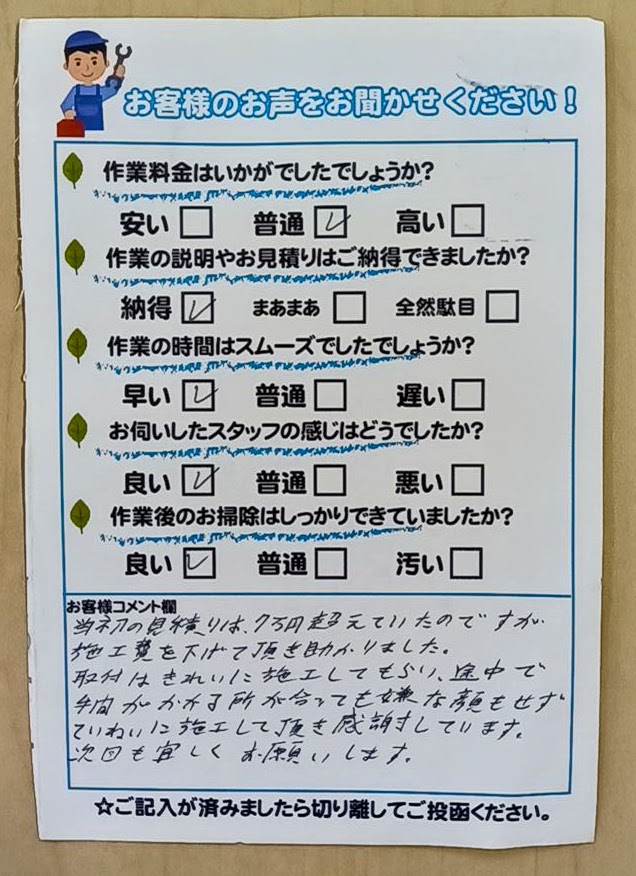 お客様のお声をお聞かせください!
作業料金はいかがでしたでしょうか?
安い□ 普通☑ 高い□
作業の説明やお見積りはご納得できましたか?
納得☑ まあまあ□ 全然駄目□
作業の時間はスムーズでしたでしょうか?
早い☑ 普通□ 遅い□
お伺いしたスタッフの感じはどうでしたか?
良い☑ 普通□ 悪い□
作業後のお掃除はしっかりできていましたか?
良い☑ 普通□ 汚い□
お客様コメント欄
当初の見積りは、7万円超えていたのですが
施工費を下げて頂き助かりました。
取付はきれいに施工してもらい、途中で
手間がかかる所が合っても嫌な顔もせず
ていねいに施工して頂き感謝しています。
次回も宜しくお願いします。
☆ご記入が済みましたら切り離してご投函ください。